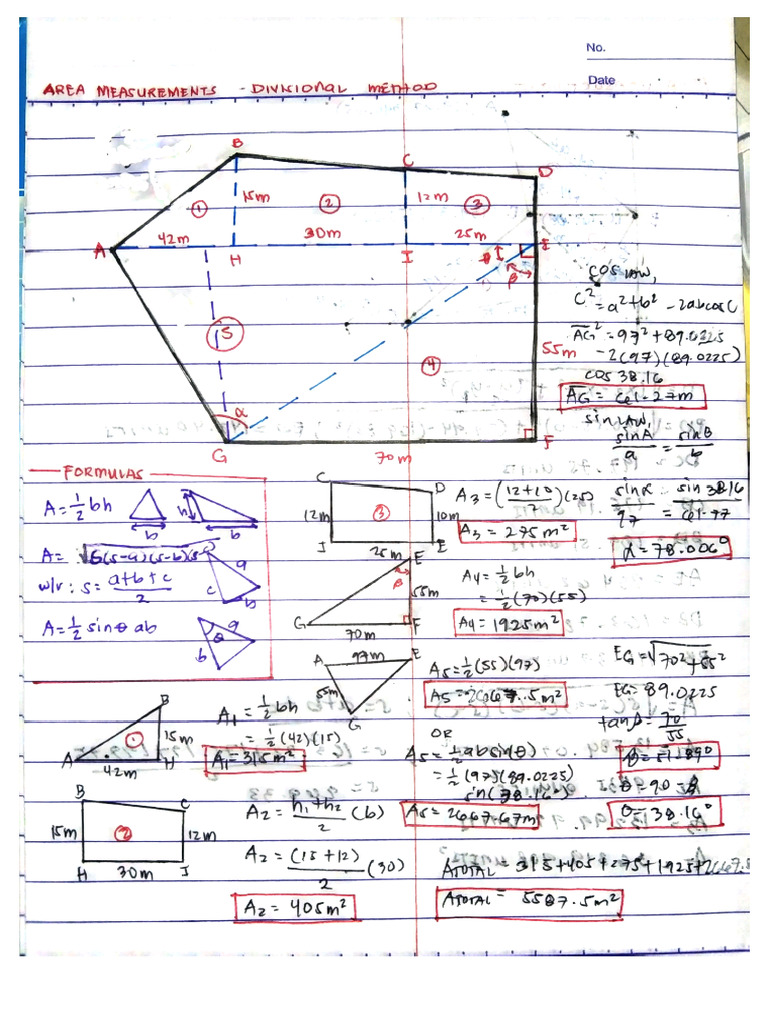 No.
Date
AREA MEASUREMENTS - DIVISIONAL METHOD
B
C
D
15m
②
12m
③
①
A
42m
30m
25m
E
H
I
θ
β
⑤
55m
④
α
G
70m
F
COS LAW,
C² = a² + b² - 2abcosC
AG² = 97² + 89.0225
- 2(97)(89.0225)
cos 38.16
SIN LAW,
sinA / a = sinB / b
α = 78.006°
FORMULAS
A = 1/2 bh
h
b
b
A = √S(s-a)(s-b)(s-c)
w/r: s = a+b+c / 2
a
c
b
A = 1/2 sinθ ab
a
θ
b
C
D
12m
③
10m
I
E
25m
A3 = (12+10 / 2)(25)
A3 = 275m²
E
β
55m
G
F
70m
A4 = 1/2 bh
= 1/2 (70)(55)
A4 = 1925m²
A
97m
E
55m
G
A5 = 1/2 (55)(97)
A5 = 2667.5m²
OR
A5 = 1/2 absin(θ)
= 1/2 (97)(89.0225)
sin(38.16)
A5 = 2667.67m
EG = √70² + 55²
EG = 89.0225
tanβ = 70 / 55
θ = 38.16°
B
①
15m
A
H
42m
A1 = 1/2 bh
= 1/2 (42)(15)
A1 = 315m²
B
C
15m
②
12m
H
30m
I
A2 = h1 + h2 / 2 (b)
A2 = (15 + 12) / 2 (30)
A2 = 405m²
ATOTAL = 315+405+275+1925+2667.5
ATOTAL = 5587.5m²